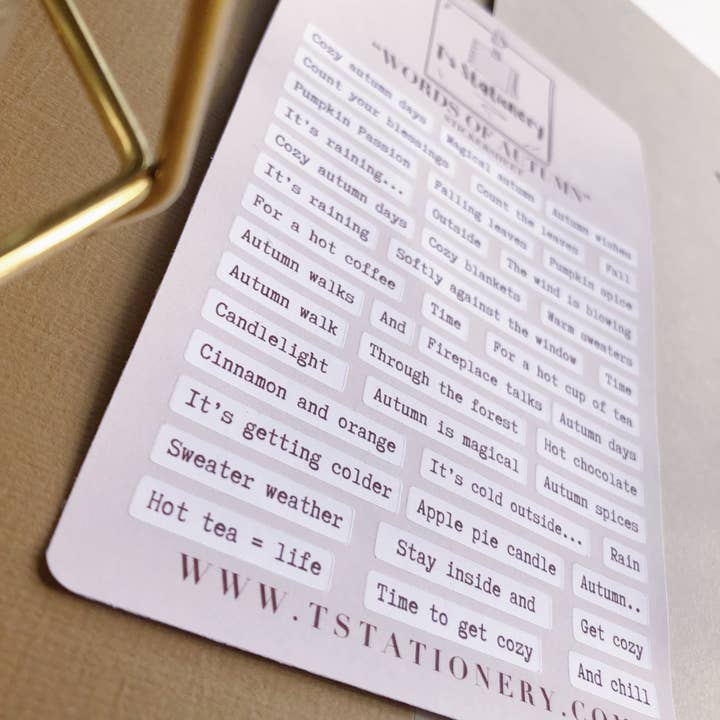 Ts Stationery
"WORDS OF AUTUMN"
Cozy autumn days Magical autumn Autumn wishes
Count your blessings Count the leaves Fall
Pumpkin Passion Falling leaves Pumpkin spice
It's raining... Outside The wind is blowing
Cozy autumn days Cozy blankets Warm sweaters
It's raining Softly against the window Time
For a hot coffee Time For a hot cup of tea
Autumn walks And Fireplace talks Autumn days
Autumn walk Through the forest Hot chocolate
Candlelight Autumn is magical Autumn spices
Cinnamon and orange It's cold outside... Rain
It's getting colder Apple pie candle Autumn..
Sweater weather Stay inside and Get cozy
Hot tea = life Time to get cozy And chill
WWW.TSTATIONERY.CO